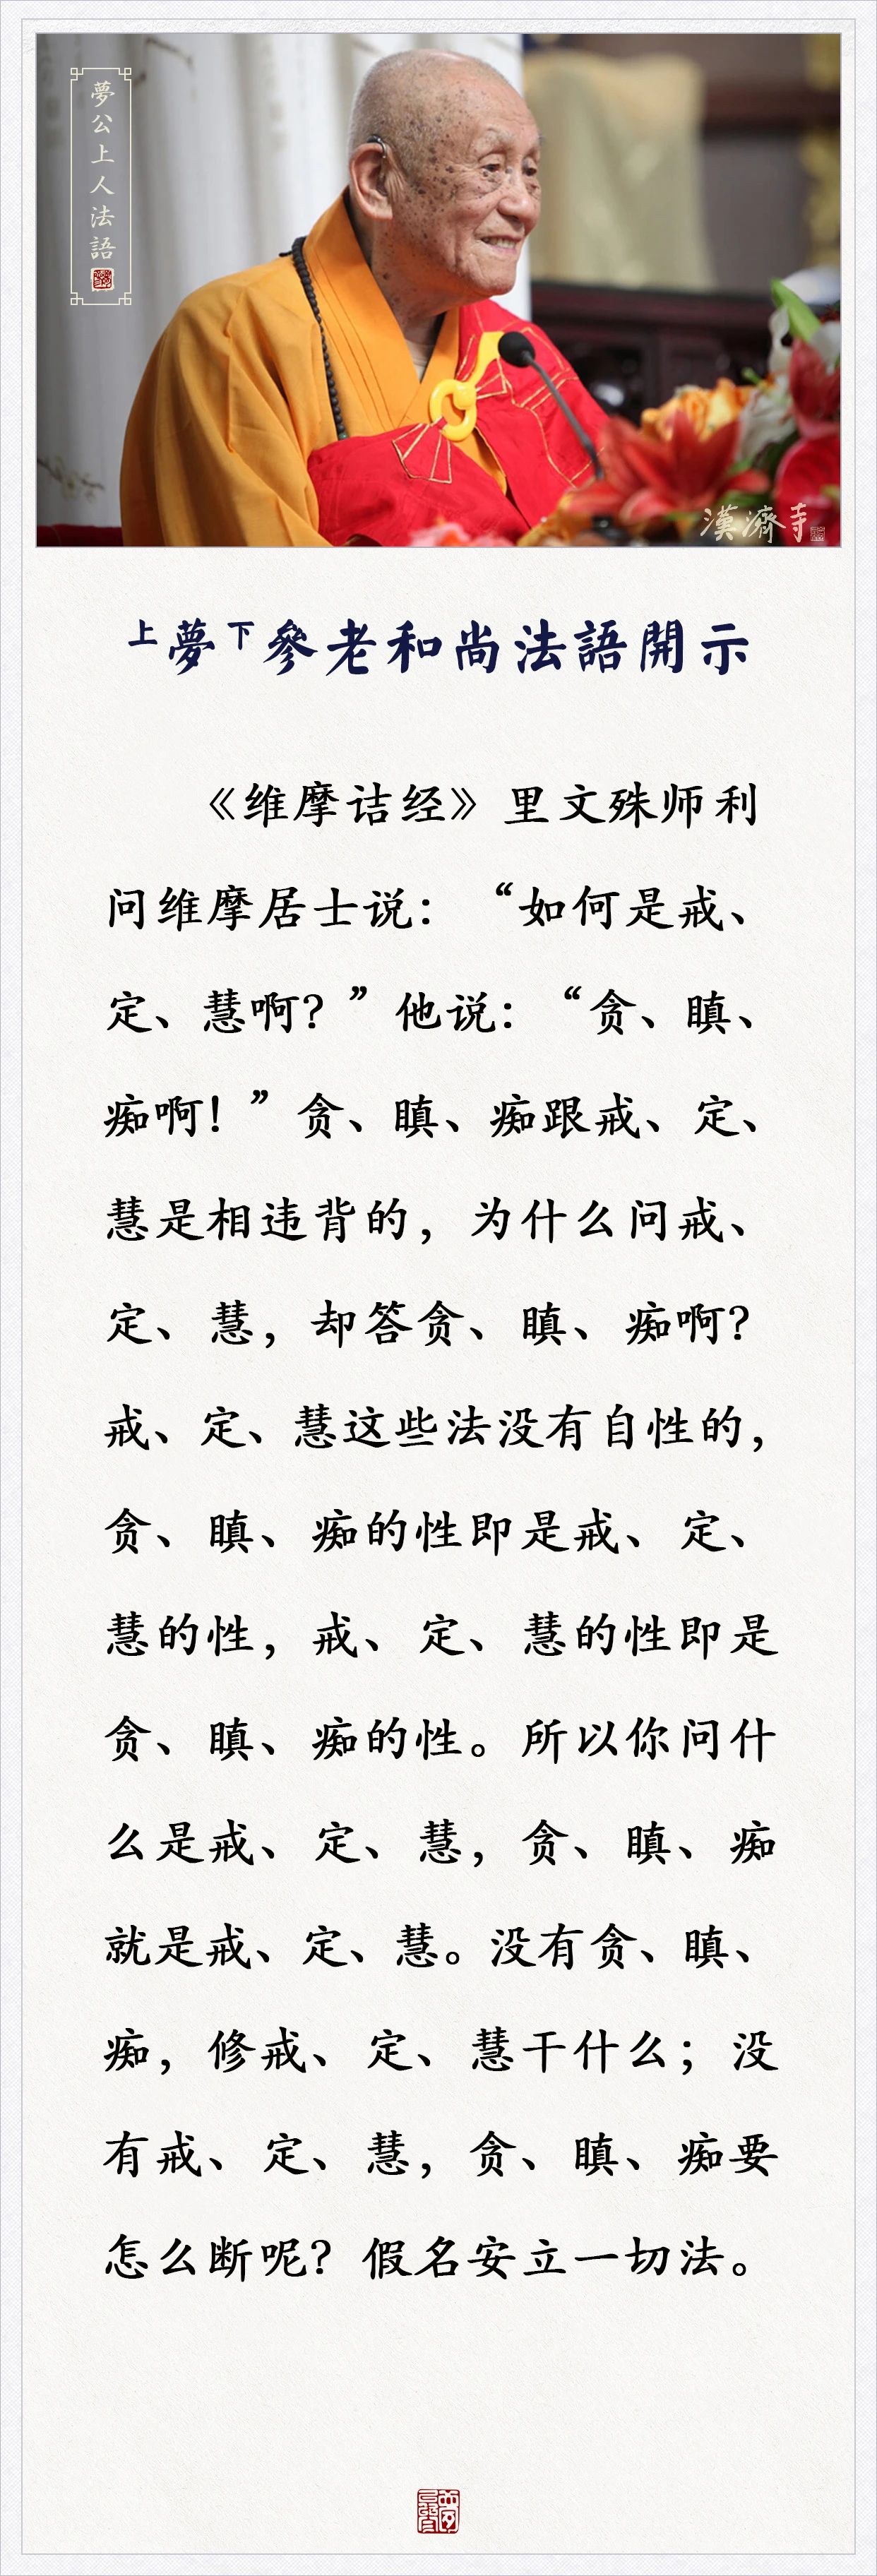 夢公上人法語
漢濟寺
上夢下參老和尚法語開示
《维摩诘经》里文殊师利
问维摩居士说：“如何是戒、
定、慧啊？”他说：“贪、瞋、
痴啊！”贪、瞋、痴跟戒、定、
慧是相违背的，为什么问戒、
定、慧，却答贪、瞋、痴啊？
戒、定、慧这些法没有自性的，
贪、瞋、痴的性即是戒、定、
慧的性，戒、定、慧的性即是
贪、瞋、痴的性。所以你问什
么是戒、定、慧，贪、瞋、痴
就是戒、定、慧。没有贪、瞋、
痴，修戒、定、慧干什么；没
有戒、定、慧，贪、瞋、痴要
怎么断呢？假名安立一切法。